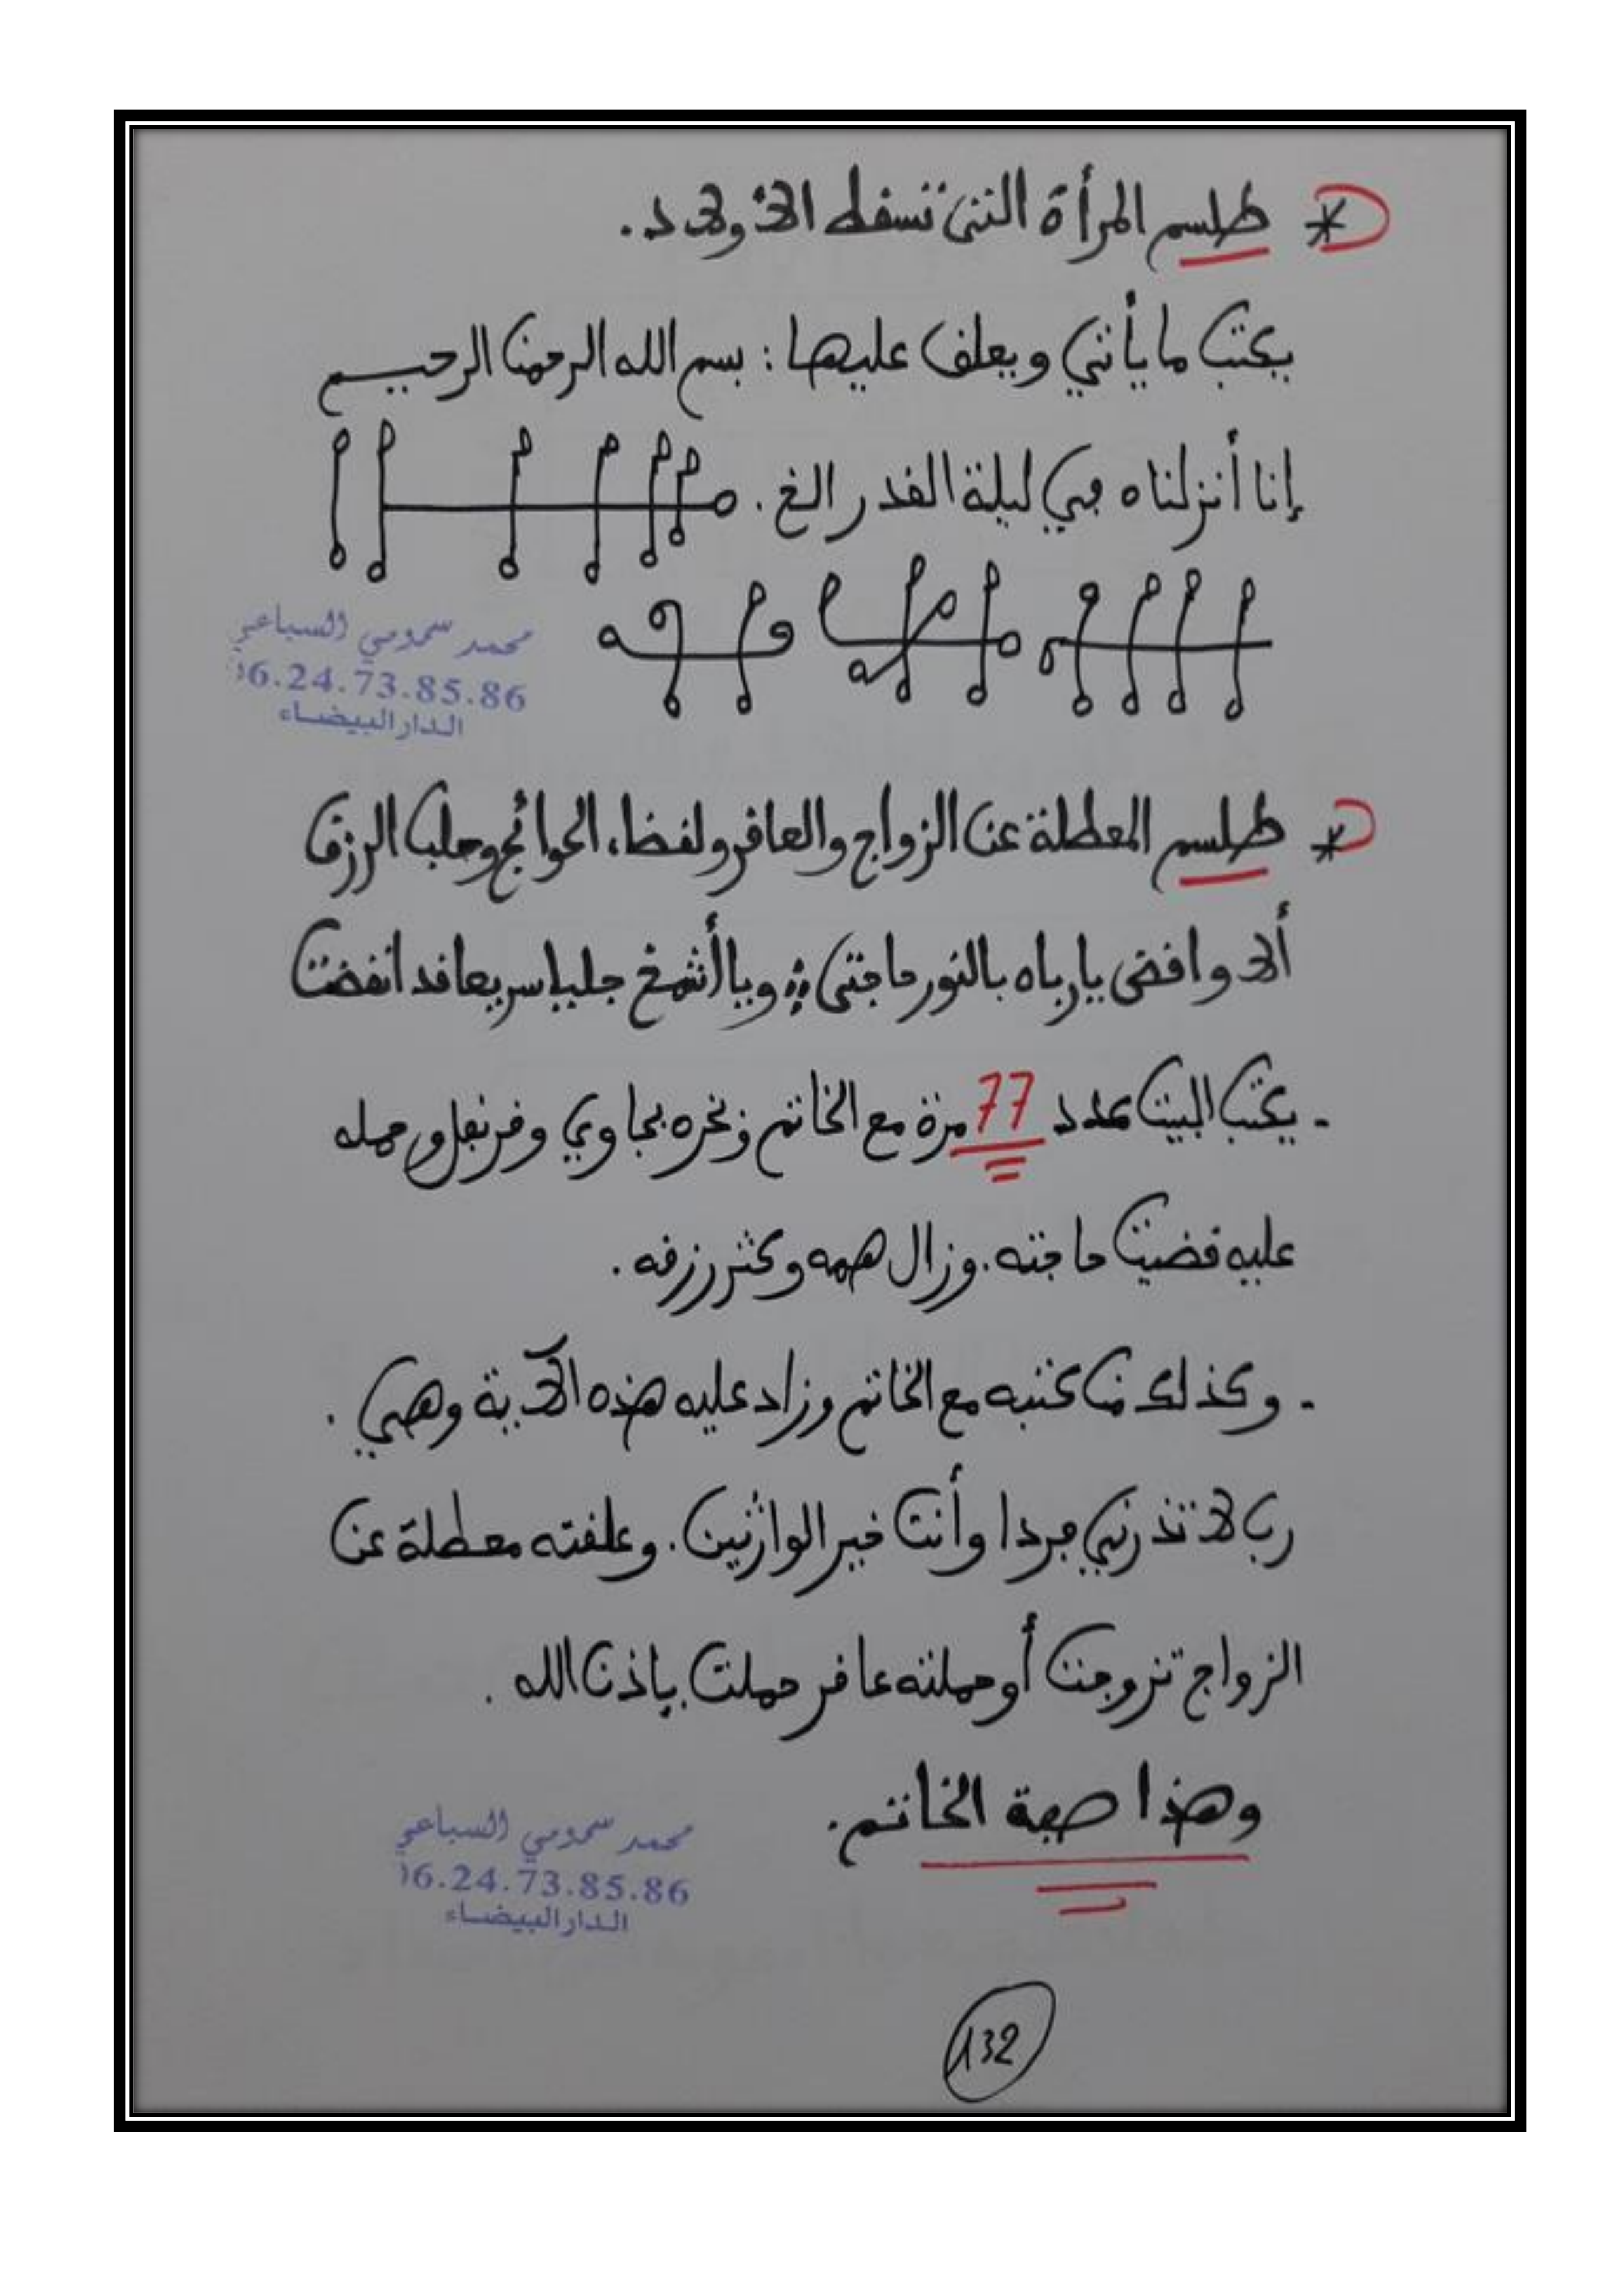 * طلسم المرأة التي تسقط الأولاد.
يكتب ما يأتي ويعلق عليها : بسم الله الرحمن الرحيم
إنا أنزلناه في ليلة القدر الخ .
محمد سحمومي السباعي
06.24.73.85.86
الدار البيضاء
* طلسم المعطلة عن الزواج والعاقر ولقضاء الحوائج وجلب الرزق
ألا واقضي يا رباه بالنور حاجتي ؛ ويا أشمخ جلبا سريعا قد انقضت
- يكتب البيت عدد 77 مرة مع الخاتم وبخره بجاوي وقرنفل وحمله
عليه قضيت حاجته . وزال همه وكثر رزقه .
- وكذلك من كتبه مع الخاتم وزاد عليه هذه الآية وهي .
رب لا تذرني فردا وأنت خير الوارثين . وعلقته معطلة عن
الزواج تزوجت أو حملته عاقر حملت بإذن الله .
وهذا صفة الخاتم .
محمد سحمومي السباعي
06.24.73.85.86
الدار البيضاء
132